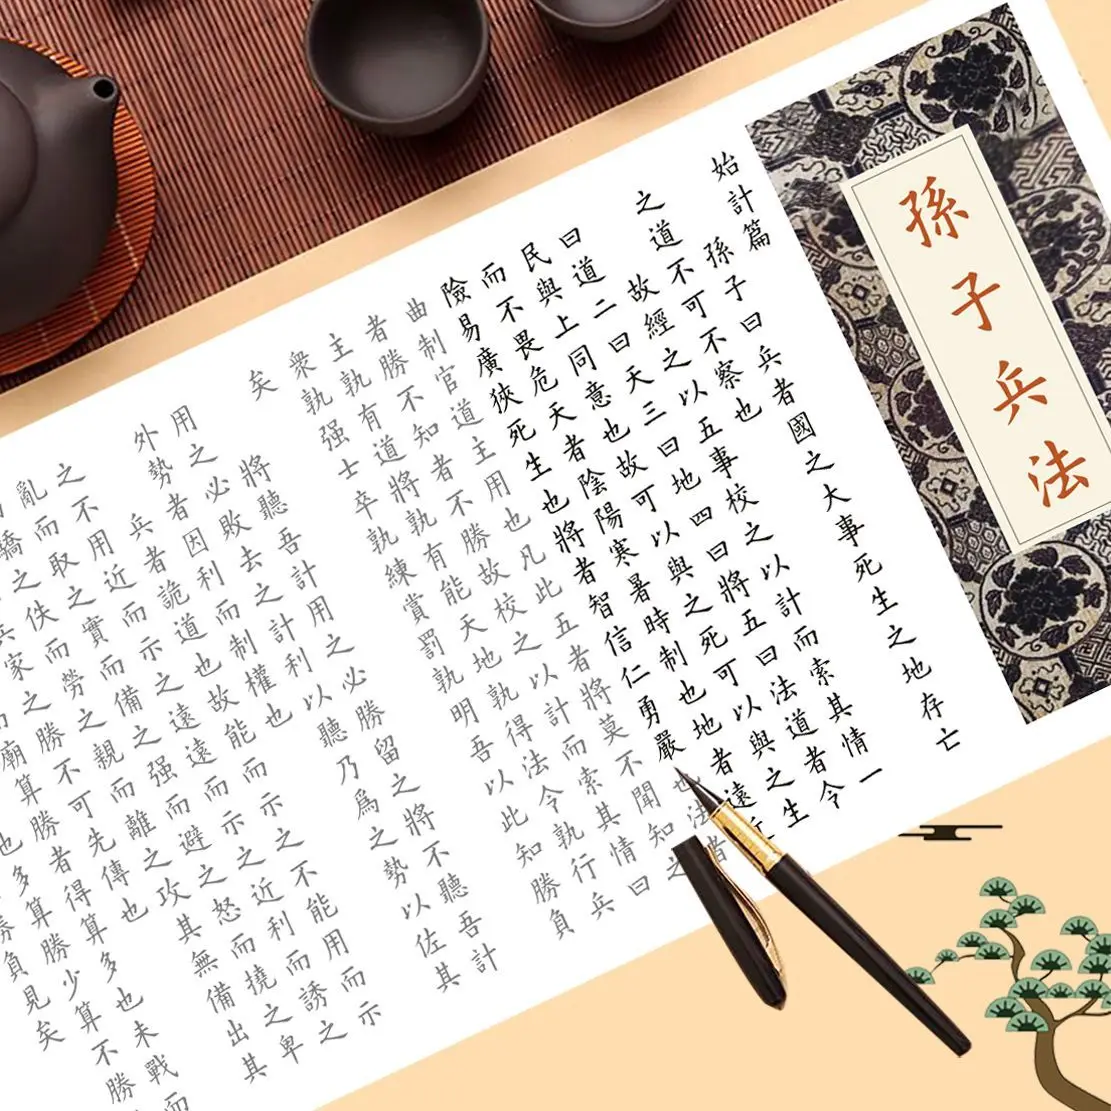 孫子兵法
始計篇
孫子曰兵者國之大事死生之地存亡
之道不可不察也
故經之以五事校之以計而索其情一
曰道二曰天三曰地四曰將五曰法道者令
民與上同意也故可以與之死可以與之生
而不畏危天者陰陽寒暑時制也地者遠近
險易廣狹死生也將者智信仁勇嚴也法者
曲制官道主用也凡此五者將莫不聞知之
者勝不知者不勝故校之以計而索其情曰
主孰有道將孰有能天地孰得法令孰行兵
衆孰强士卒孰練賞罰孰明吾以此知勝負
矣
將聽吾計用之必勝留之將不聽吾計
用之必敗去之計利以聽乃爲之勢以佐其
外勢者因利而制權也
兵者詭道也故能而示之不能用而示
之不用近而示之遠遠而示之近利而誘之
亂而取之實而備之强而避之怒而撓之卑
驕之佚而勞之親而離之攻其無備出其
兵家之勝不可先傳也
廟算勝者得算多也未戰而
也多算勝少算不勝
負見矣